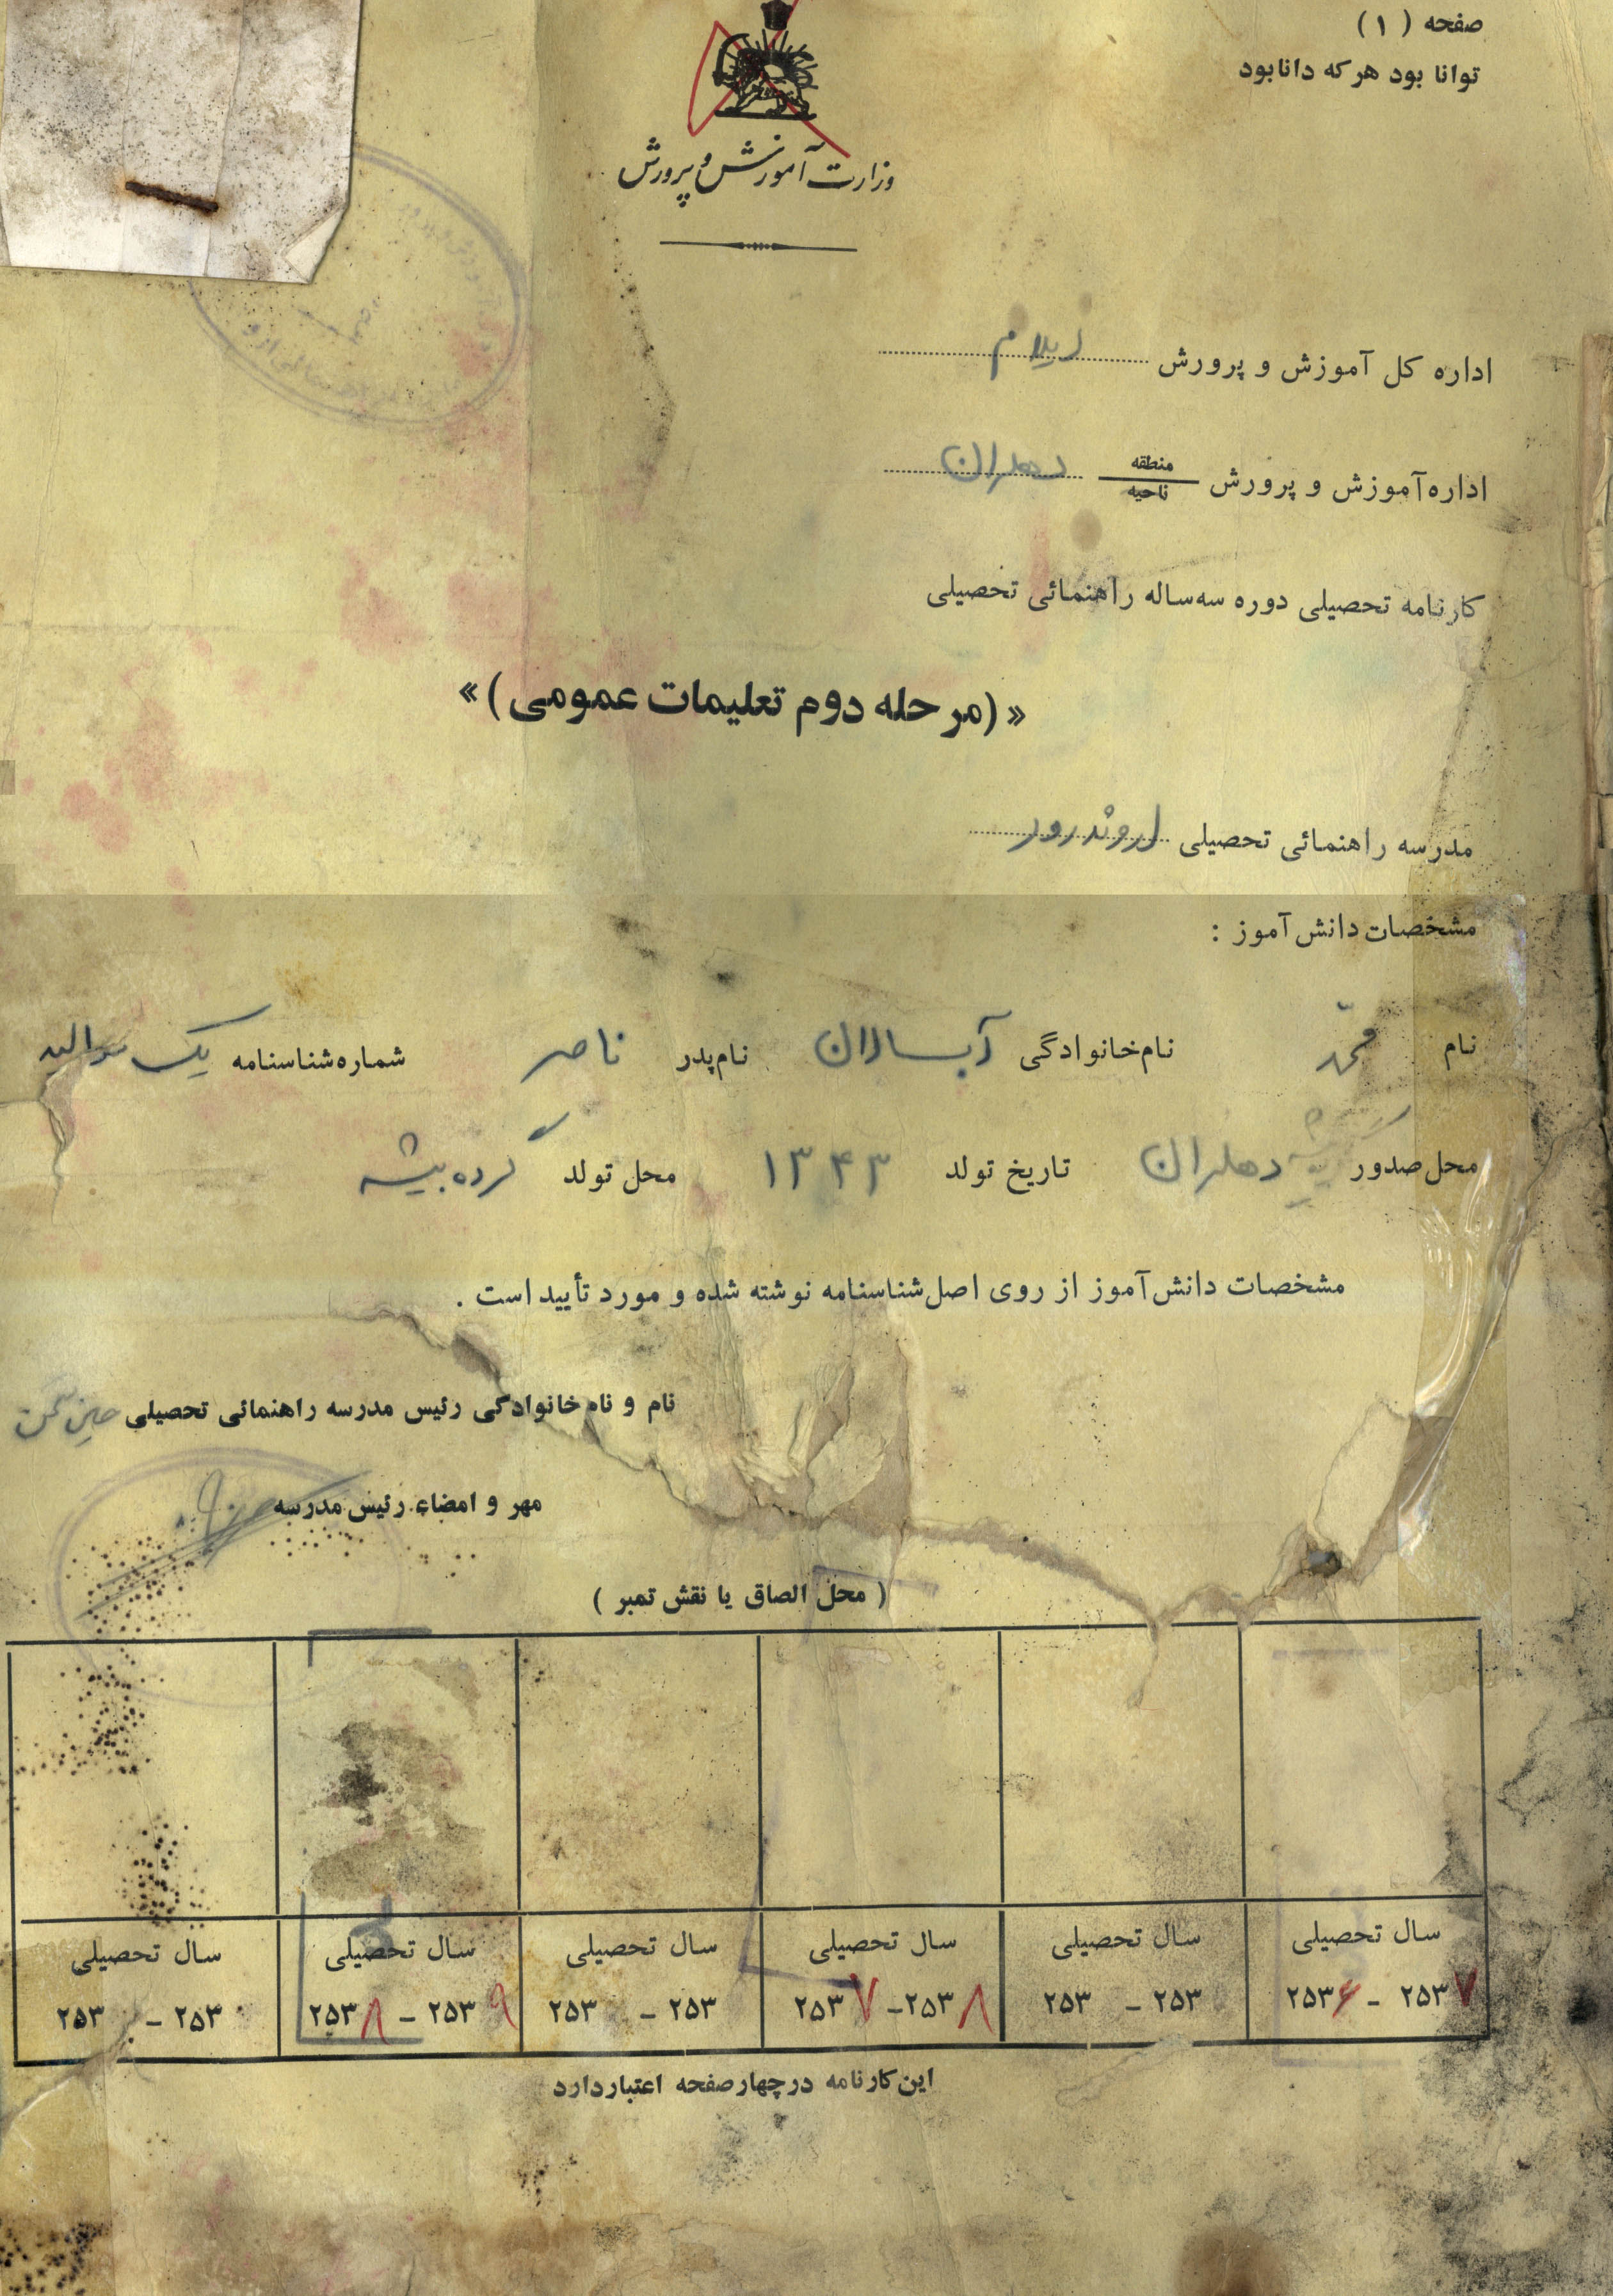 صفحه ( ۱ )
توانا بود هر که دانا بود
وزارت آموزش و پرورش
اداره کل آموزش و پرورش ایلام
اداره آموزش و پرورش منطقه / ناحیه دهلران
کارنامه تحصیلی دوره سه‌ساله راهنمائی تحصیلی
«(مرحله دوم تعلیمات عمومی)»
مدرسه راهنمائی تحصیلی اروندرود
مشخصات دانش آموز :
نام محمد نام خانوادگی آبساران نام پدر ناصر شماره شناسنامه یک
محل صدور دهلران تاریخ تولد ۱۳۴۳ محل تولد
مشخصات دانش آموز از روی اصل شناسنامه نوشته شده و مورد تأیید است .
نام و نام خانوادگی رئیس مدرسه راهنمائی تحصیلی
مهر و امضاء رئیس مدرسه
( محل الصاق یا نقش تمبر )
سال تحصیلی سال تحصیلی سال تحصیلی سال تحصیلی سال تحصیلی سال تحصیلی
۲۵۳۷ - ۲۵۳۶ ۲۵۳ - ۲۵۳ ۲۵۳۸ - ۲۵۳۷ ۲۵۳ - ۲۵۳ ۲۵۳۹ - ۲۵۳۸ ۲۵۳ - ۲۵۳
این کارنامه در چهار صفحه اعتبار دارد